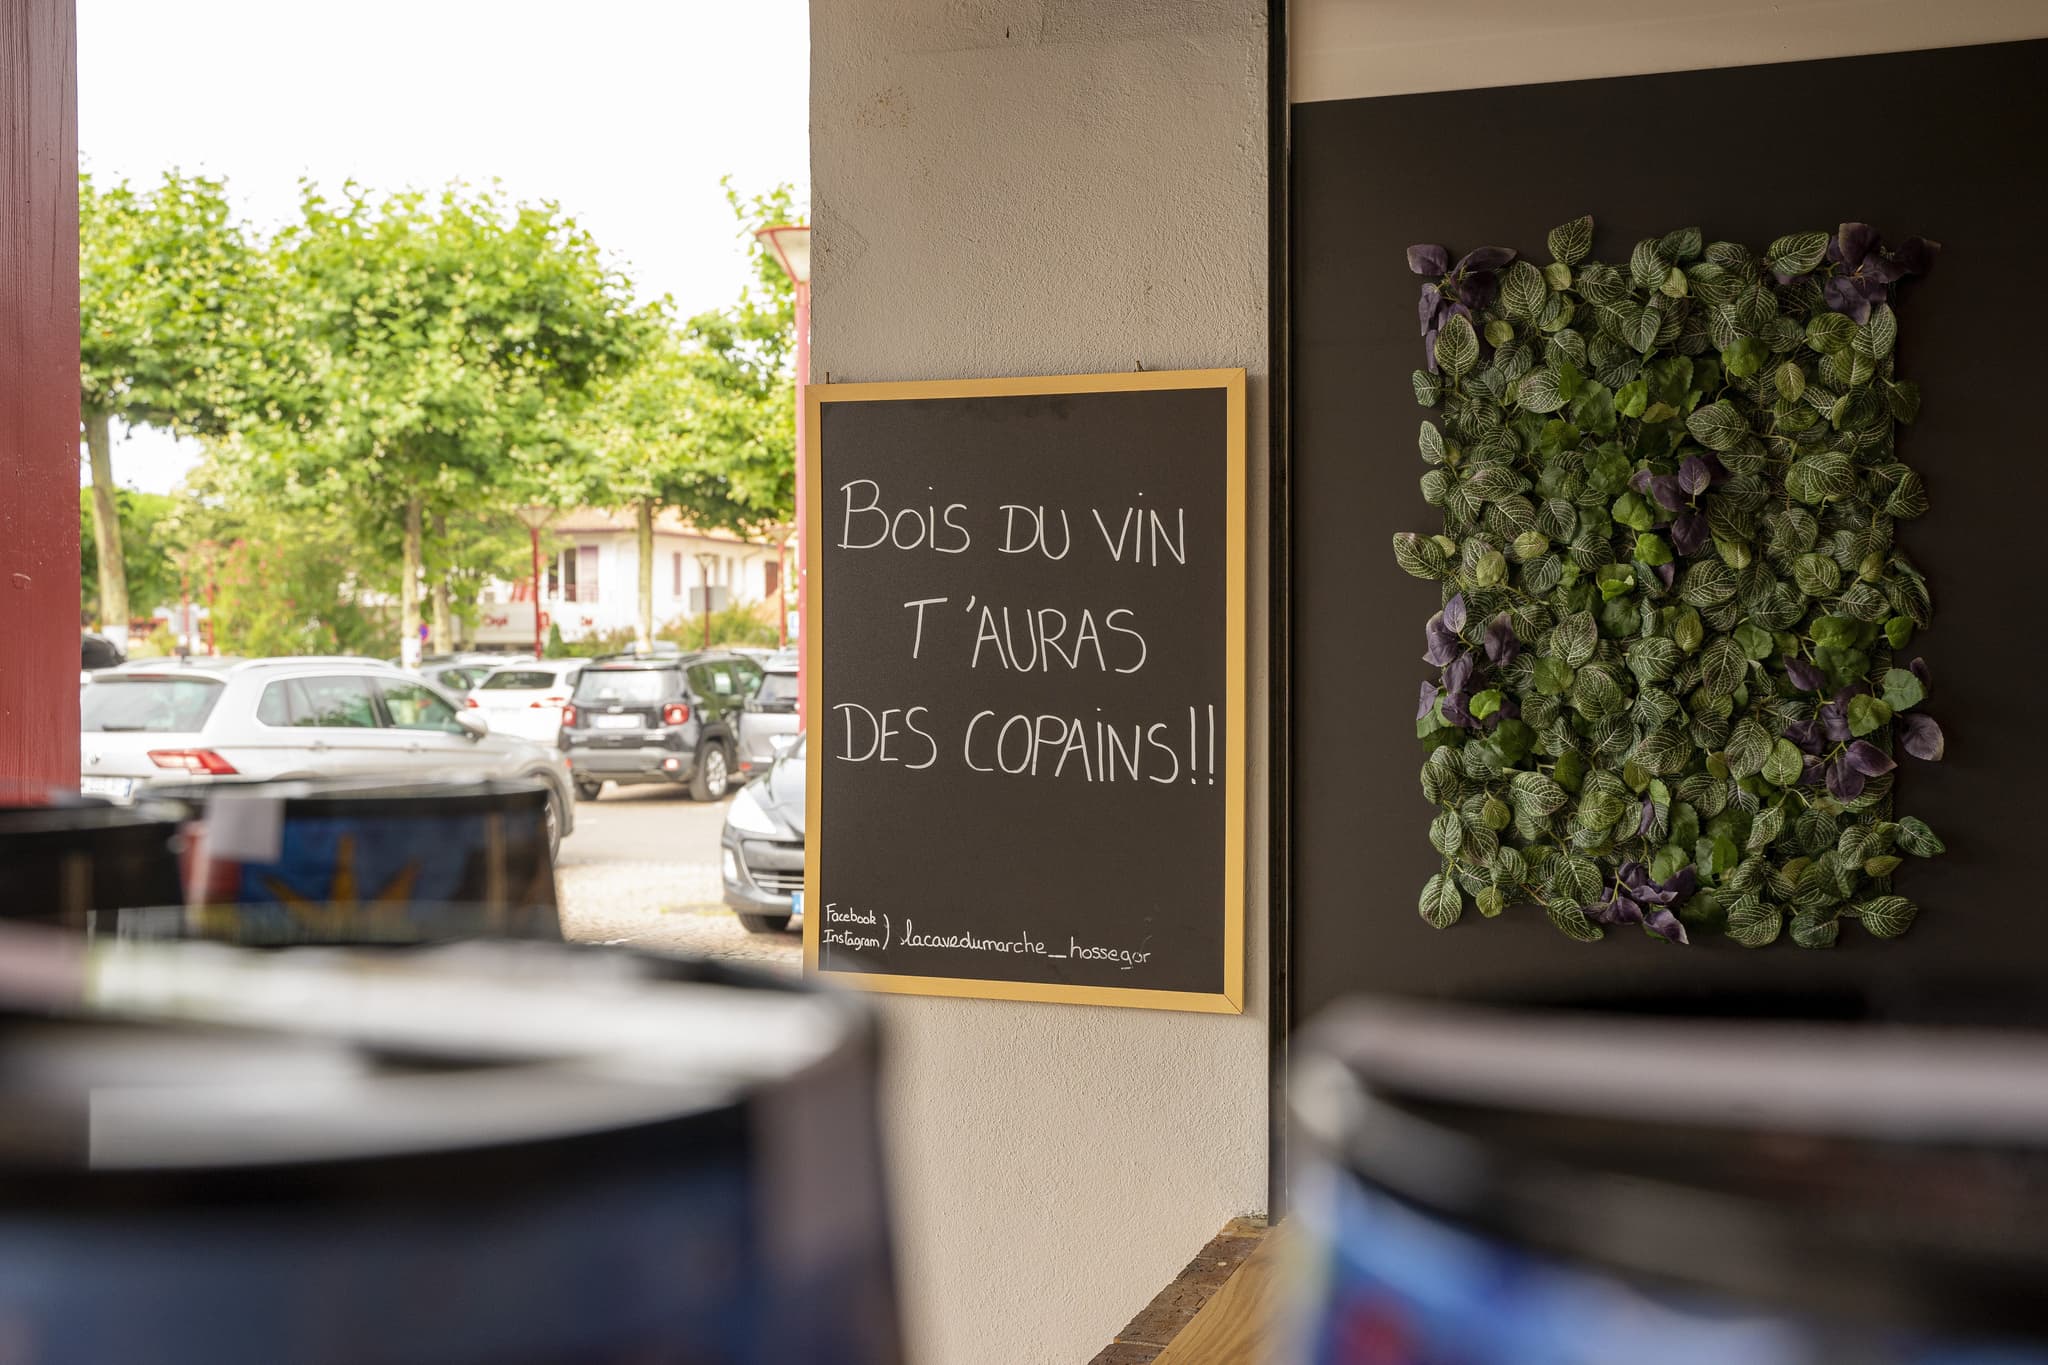 Bois du vin
t'auras
des copains!!
Facebook
Instagram ) lacavedumarche_hossegor